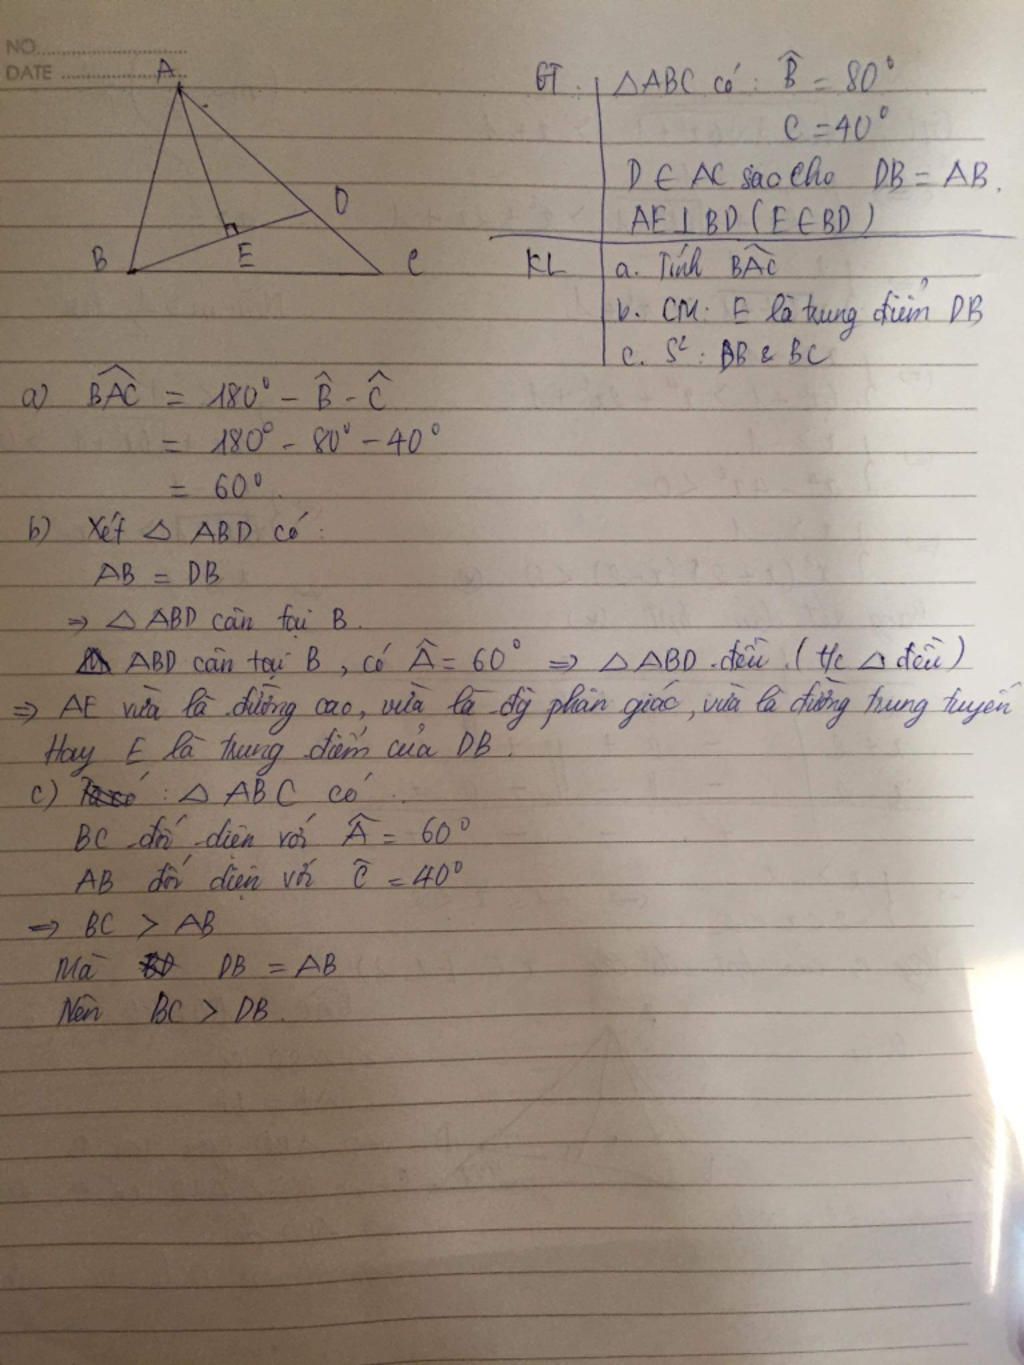 NO
DATE
A
D
B
E
C
GT. △ABC có: B̂ = 80°
C = 40°
D ∈ AC sao cho DB = AB.
AE ⊥ BD (E ∈ BD)
KL a. Tính BÂC
b. CM: E là trung điểm DB
c. S²: DB & BC
a) BÂC = 180° - B̂ - Ĉ
= 180° - 80° - 40°
= 60°.
b) Xét △ ABD có:
AB = DB
⇒ △ ABD cân tại B.
ABD cân tại B, có Â = 60° ⇒ △ ABD đều (t/c △ đều)
⇒ AE vừa là đường cao, vừa là đg phân giác, vừa là đường trung tuyến
Hay E là trung điểm của DB.
c) : △ ABC có:
BC đối diện với Â = 60°
AB đối diện với Ĉ = 40°
⇒ BC > AB
Mà DB = AB
Nên BC > DB.